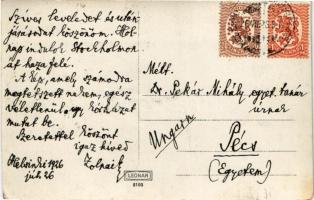 Szíves leveledet és után-
járásodat köszönöm. Hol-
nap indulok Stockholmon
át haza felé.
A kép, amely számodra
megtetszett nekem, egész
véletlenül egy kórházat
mutat be.
Szeretettel köszönt
igaz híved
Zolnai
Helsinki 1926
júl. 26
LEONAR
Mélt.
Dr. Pekár Mihály egyet. tanár
úrnak
Ungarn
Pécs
(Egyetem)